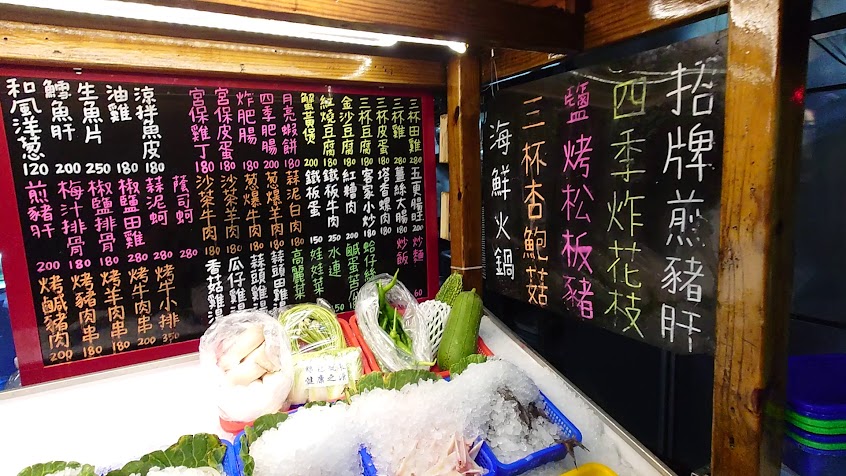 招牌煎豬肝
四季炸花枝
鹽烤松板豬
三杯杏鮑菇
海鮮火鍋
三杯田雞 280
三杯雞 280
三杯皮蛋 180
三杯豆腐 180
金沙豆腐 180
紅燒豆腐 180
蟹黃煲 200
月亮蝦餅 180
四季肥腸 180
炸肥腸 200
宮保皮蛋 180
宮保雞丁 180
涼拌魚皮 180
油雞 180
生魚片 250
鱈魚肝 200
和風洋蔥 120
五更腸旺
薑絲大腸
塔香螺肉 180
客家小炒 180
紅糟肉 180
鐵板牛肉 200
鐵板蛋 150
蒜泥白肉 180
蔥爆羊肉 180
蔥爆牛肉 180
沙茶羊肉 180
沙茶牛肉 180
蔭蚵 280
蒜泥蚵 280
椒鹽田雞 280
椒鹽排骨 180
梅汁排骨 180
煎豬肝 200
炒麵
炒飯
蛤仔絲
鹹蛋苦瓜
水蓮 250
娃娃菜
高麗菜
蒜頭田
蒜頭雞湯
瓜仔雞湯
香菇雞湯
烤牛小排 350
烤牛肉串
烤羊肉串 180
烤豬肉串 180
烤鹹豬肉 200